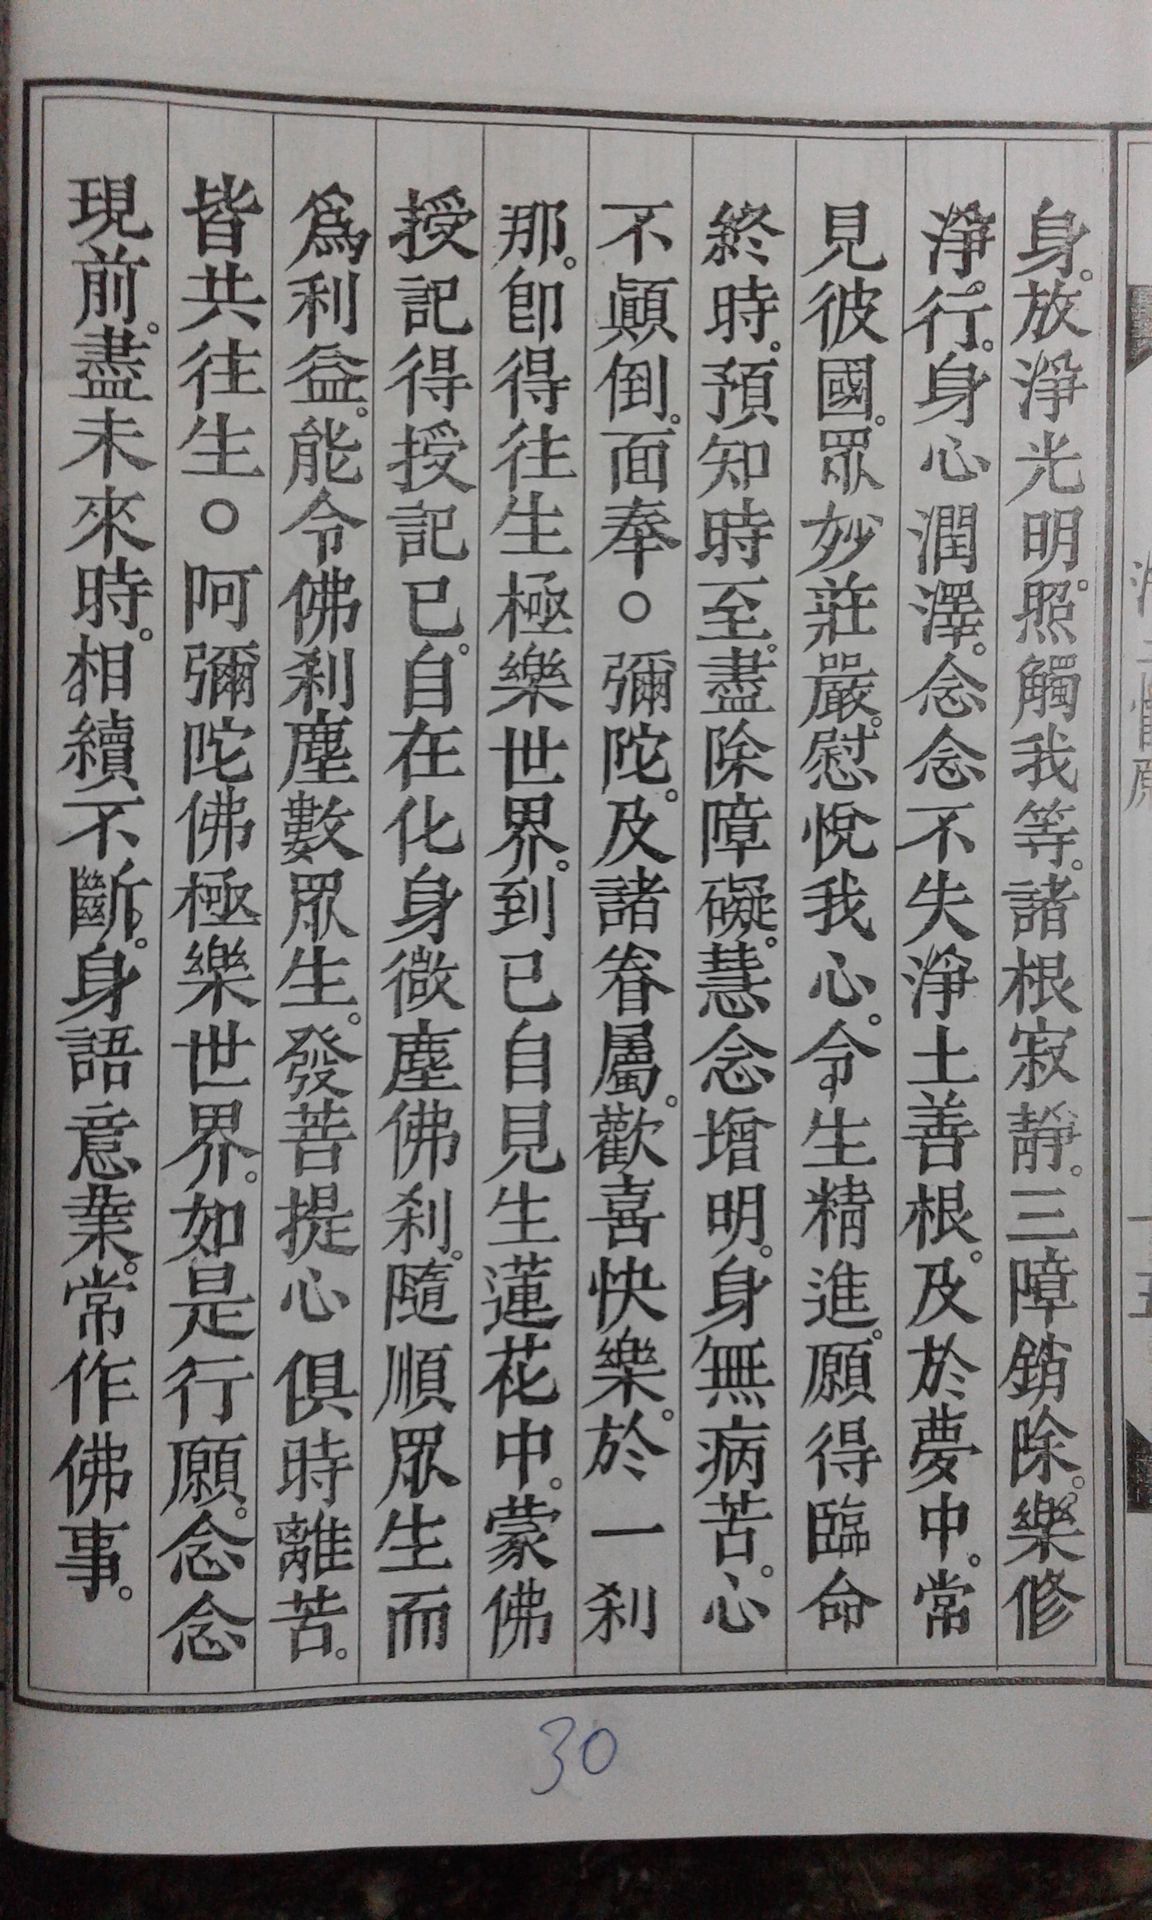 身。放淨光明。照觸我等。諸根寂靜。三障銷除。樂修
淨行。身心潤澤。念念不失淨土善根。及於夢中。常
見彼國。眾妙莊嚴。慰悅我心。令生精進。願得臨命
終時。預知時至。盡除障礙。慧念增明。身無病苦。心
不顛倒。面奉○彌陀。及諸眷屬。歡喜快樂。於一剎
那。即得往生極樂世界。到已自見生蓮花中。蒙佛
授記得授記已。自在化身微塵佛剎。隨順眾生而
為利益。能令佛剎塵數眾生。發菩提心俱時離苦。
皆共往生○阿彌陀佛極樂世界。如是行願。念念
現前。盡未來時。相續不斷。身語意業。常作佛事。
30